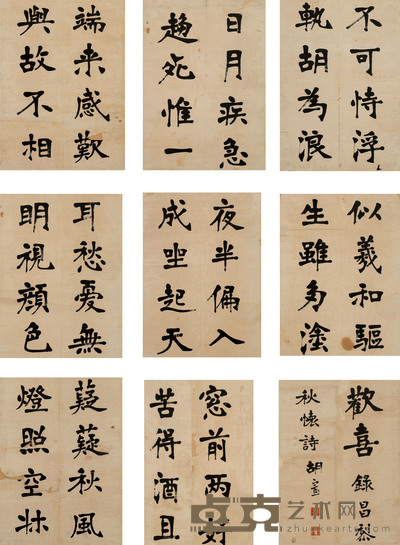 不可恃浮
軌胡為浪
日月疾急
趨死惟一
端来感歎
與故不相
似羲和驅
生雖多塗
夜半偏入
成坐起天
耳愁憂無
明視顏色
歡喜 錄昌黎
秋懷詩 胡
窓前兩好
苦得酒且
薿薿秋風
燈照空牀
卓克艺术网
zhuokearts.com